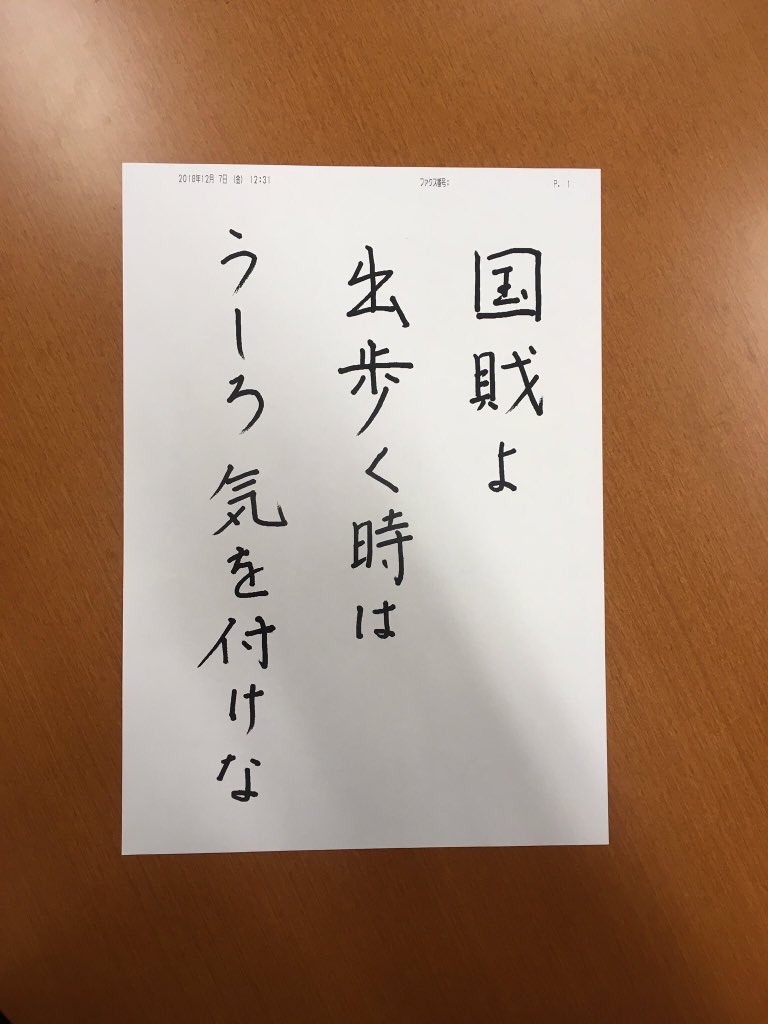 2018年12月 7日 (金) 12:31 ファクス番号: P. 1
国賊よ
出歩く時は
うしろ気を付けな